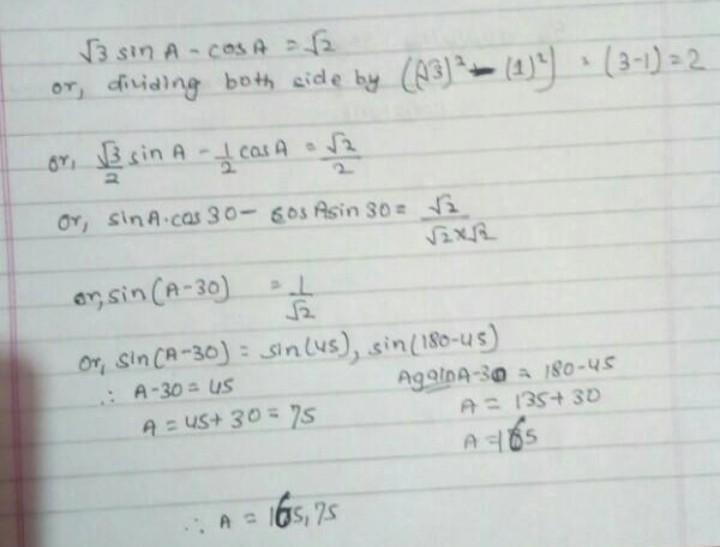 √3 sin A - cos A = √2
or, dividing both side by ((√3)² - (1)²) = (3-1) = 2
or, √3/2 sin A - 1/2 cos A = √2/2
or, sin A . cos 30 - cos A sin 30 = √2/√2×√2
or, sin (A-30) = 1/√2
Or, sin (A-30) = sin(45), sin(180-45)
∴ A-30 = 45 Again A-30 = 180-45
A = 45+30 = 75 A = 135+30
A = 165
∴ A = 165, 75